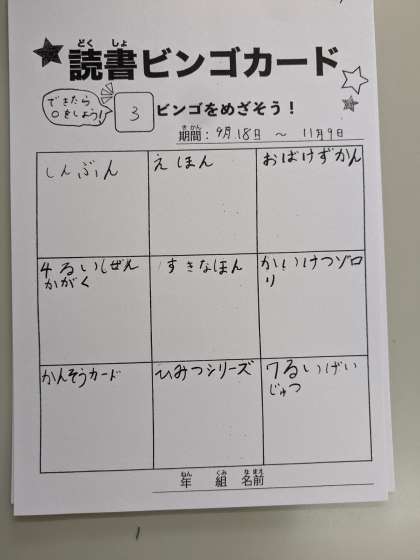 どく しょ
読書ビンゴカード
できたら
○をしよう!
3
ビンゴをめざそう!
きかん
期間:9月.18日 ~ 11月9日
しんぶん
えほん
おばけずかん
4るいしぜん
かがく
すきなほん
かいけつゾロ
リ
かんそうカード
ひみつシリーズ
7るいげい
じゅつ
ねん くみ なまえ
年 組 名前